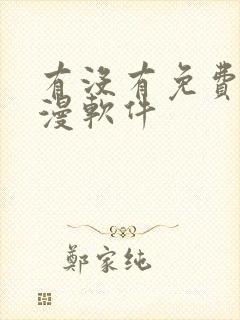 有没有免費
漫軟件
鄭家纯